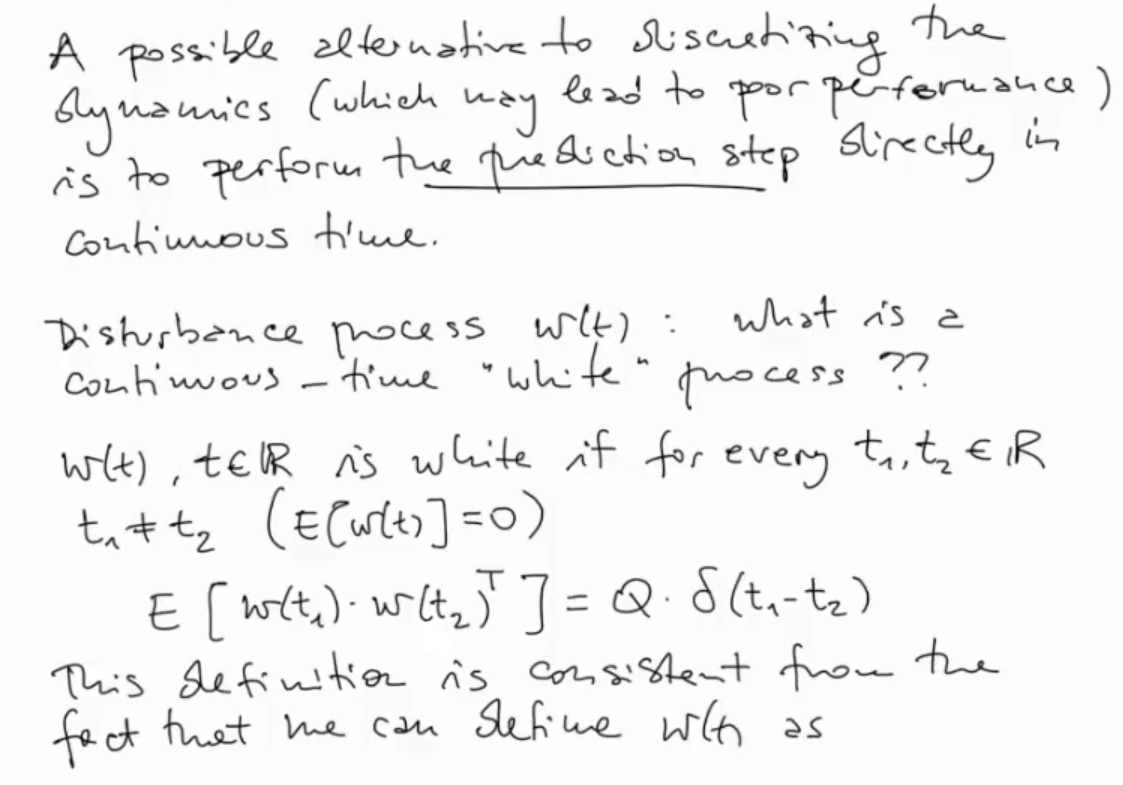 A possible alternative to discretizing the
dynamics (which may lead to poor performance)
is to perform the prediction step directly in
continuous time.
Disturbance process w(t) : what is a
continuous-time "white" process ??
w(t), t∈ℝ is white if for every t₁,t₂ ∈ ℝ
t₁≠t₂ (E[w(t)]=0)
E [w(t₁)·w(t₂)ᵀ] = Q·δ(t₁-t₂)
This definition is consistent from the
fact that we can define w(t) as